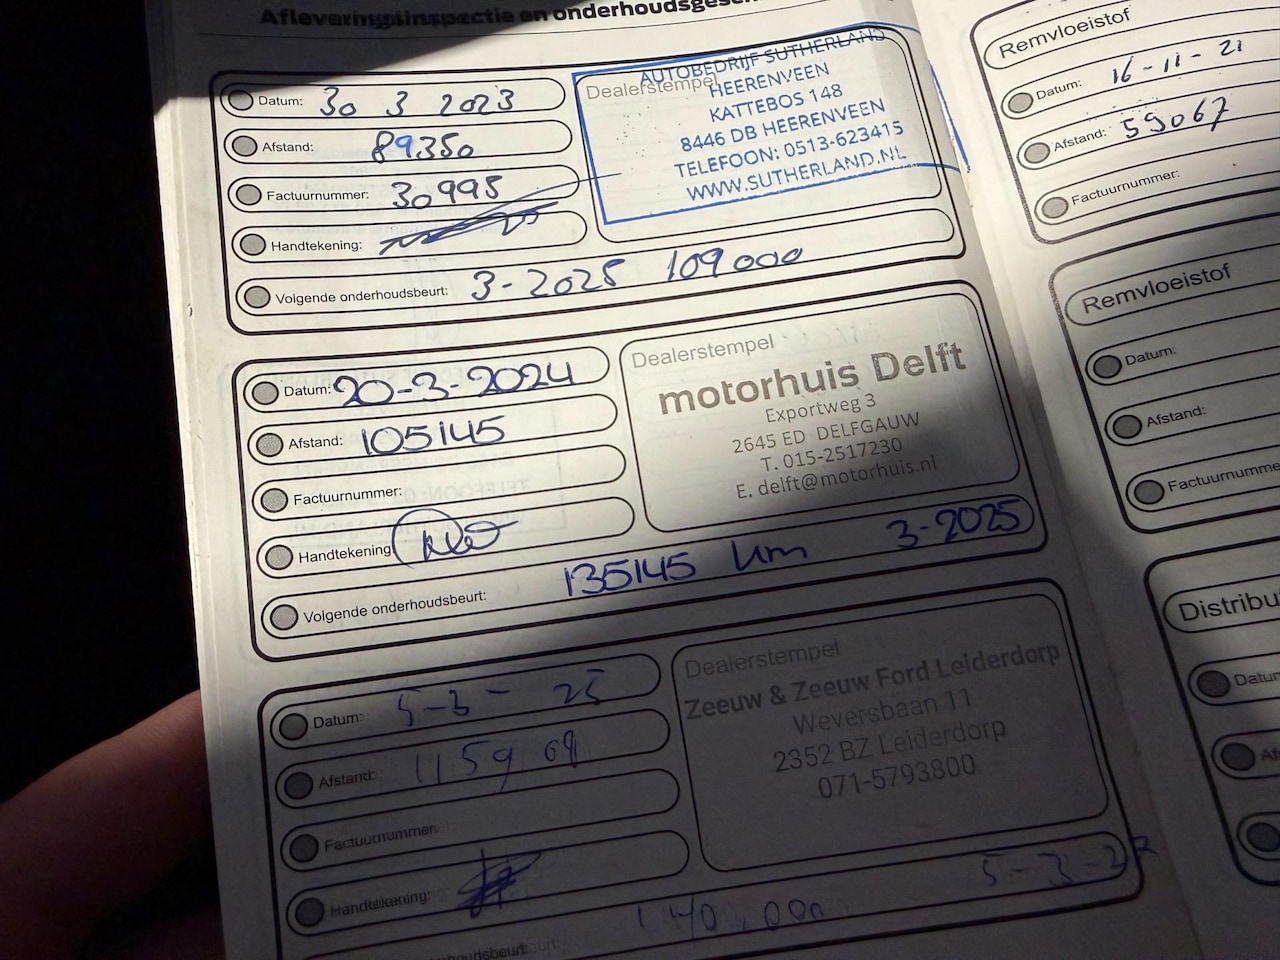 Afleveringsinspectie en
Datum: 30 3 2023
Afstand: 89350
Factuurnummer: 30995
Handtekening:
Volgende onderhoudsbeurt: 3-2025 109000
Dealerstempel
AUTOBEDRIJF SUTHERLAND
HEERENVEEN
KATTEBOS 148
8446 DB HEERENVEEN
TELEFOON: 0513-623415
WWW.SUTHERLAND.NL
Datum: 20-3-2024
Afstand: 105145
Factuurnummer:
Handtekening
Volgende onderhoudsbeurt: 135145 km 3-2025
Dealerstempel
motorhuis Delft
Exportweg 3
2645 ED DELFGAUW
T. 015-2517230
E. delft@motorhuis.nl
Datum: 5-3-25
Afstand: 115969
Factuurnummer
Handtekening:
140.000 5-3-27
Dealerstempel
Zeeuw & Zeeuw Ford Leiderdorp
Weversbaan 11
2352 BZ Leiderdorp
071-5793800
Remvloeistof
Datum: 16-11-21
Afstand: 59067
Factuurnummer:
Remvloeistof
Datum:
Afstand:
Factuurnumme
Distribu
Datum
Af